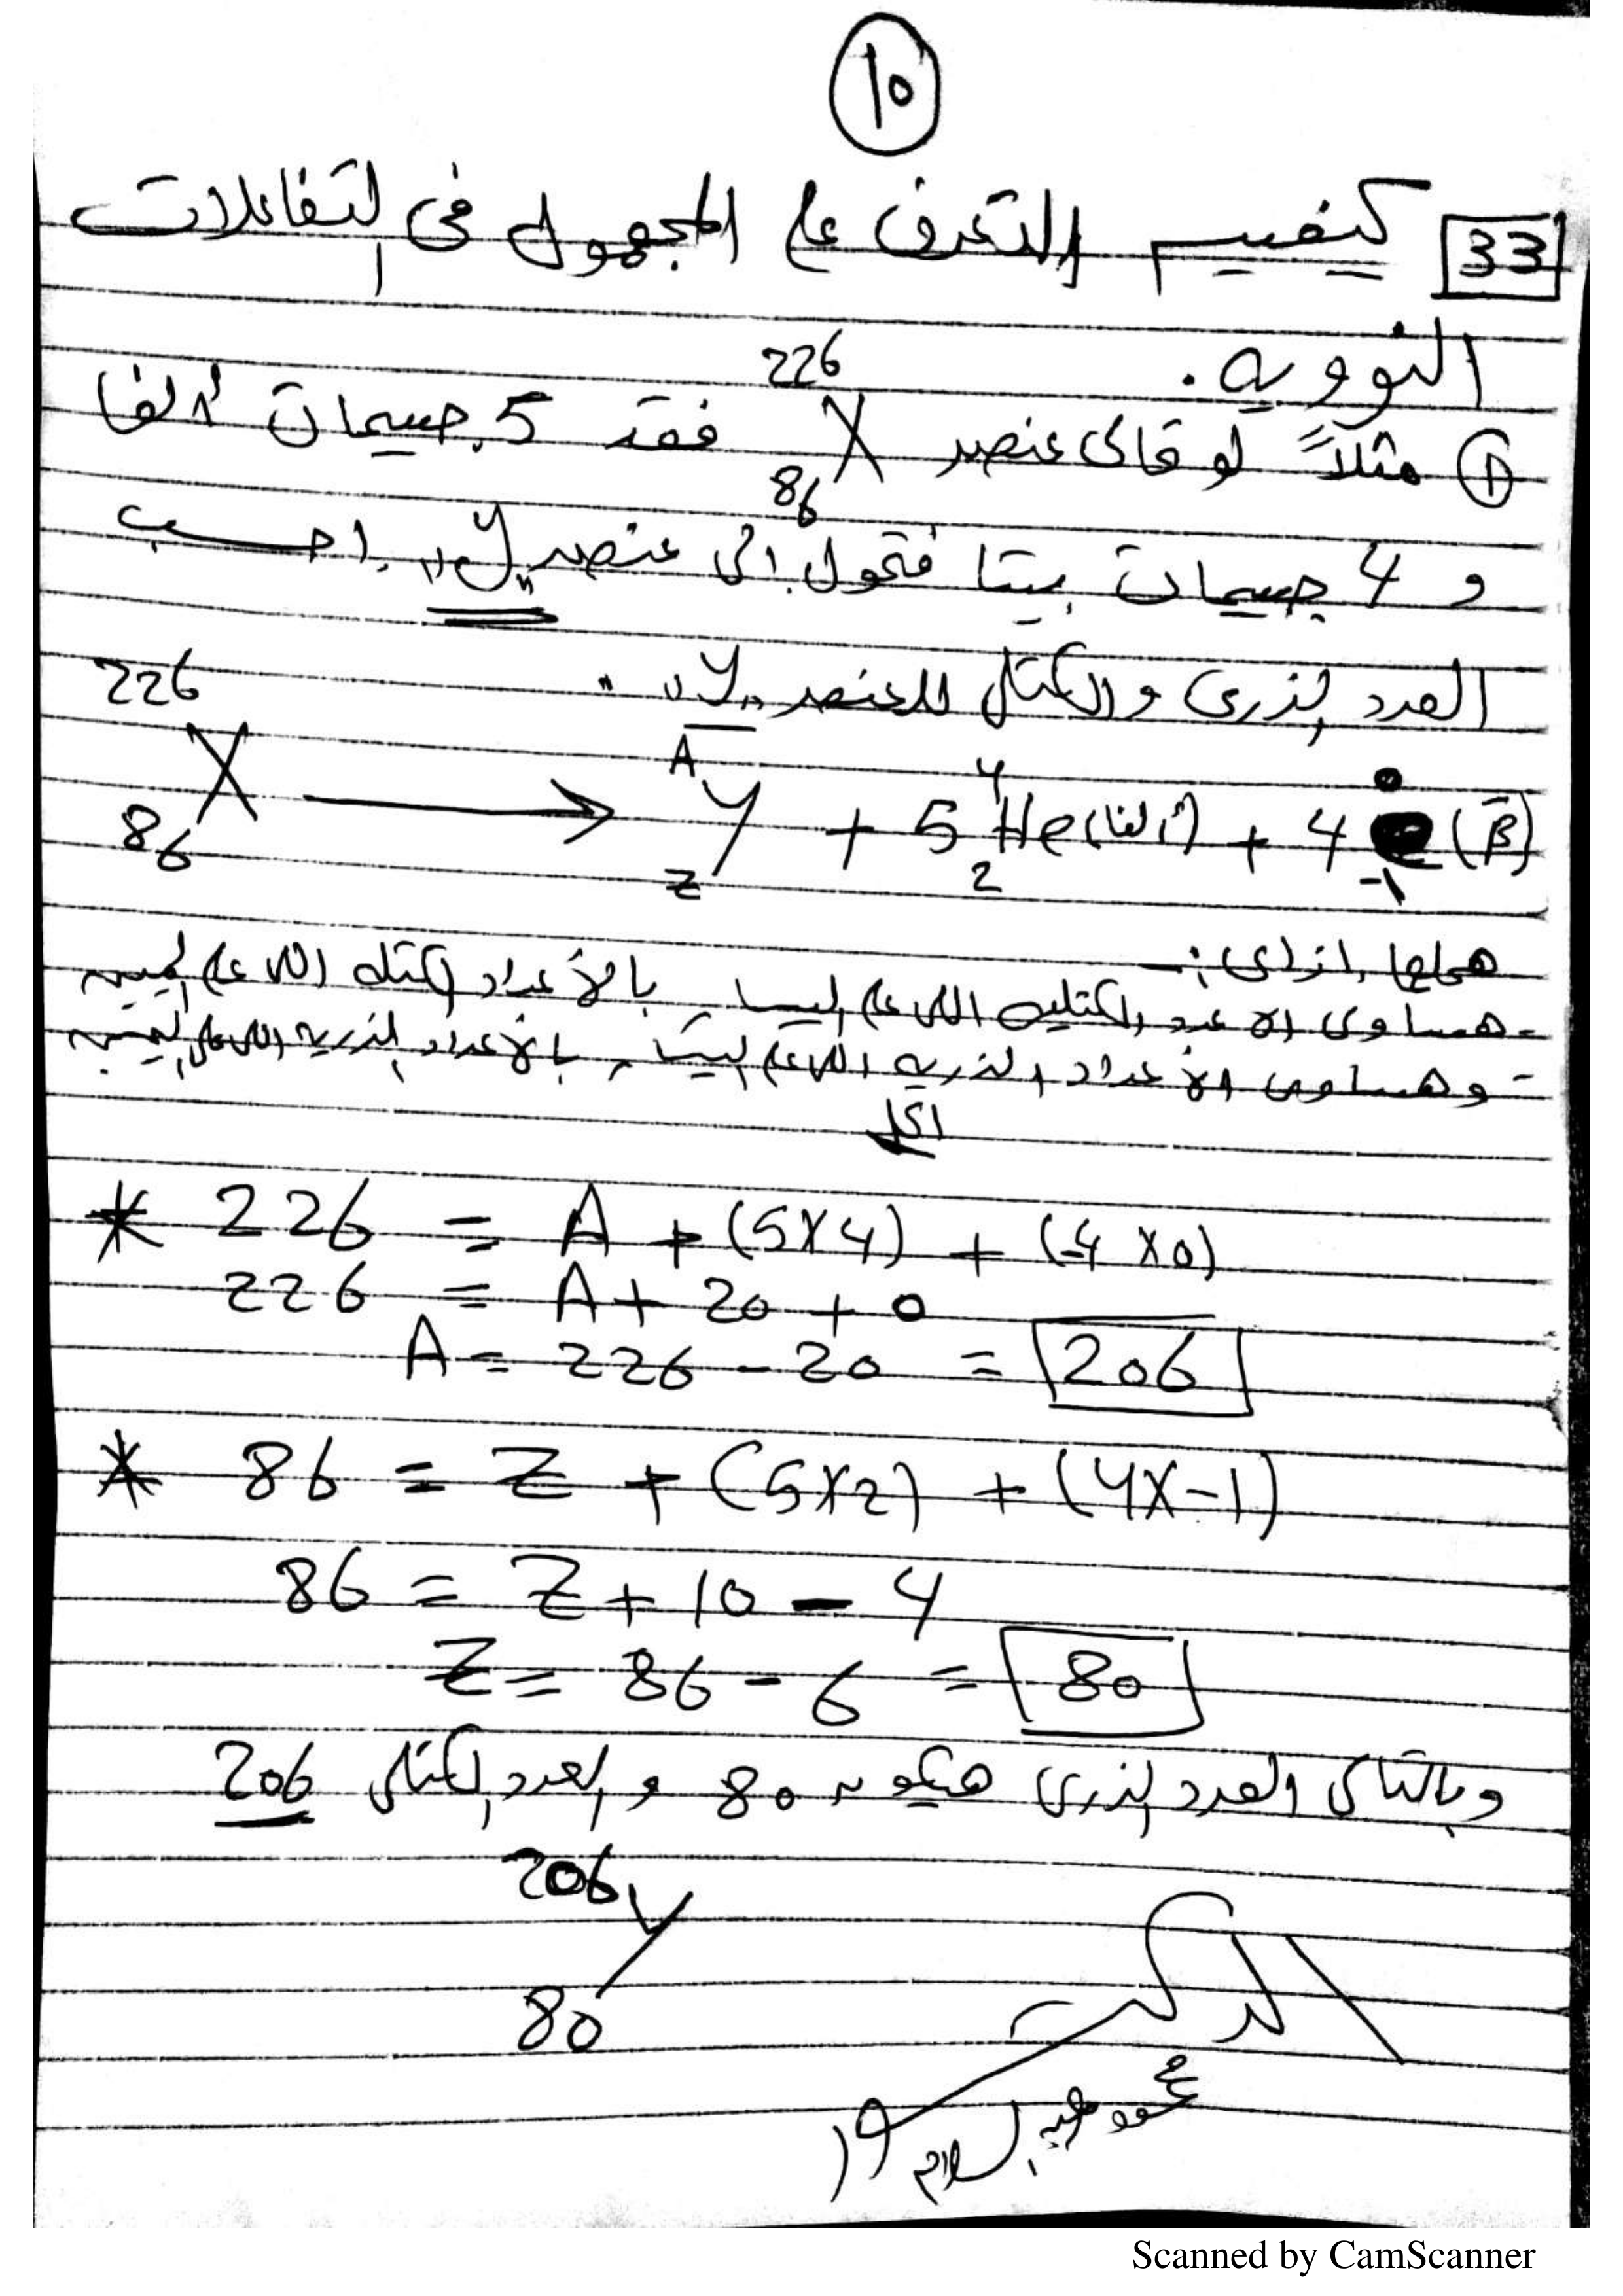 10
33 كيفية التعرف على المجهول فى التفاعلات
النووية.
① مثلاً لو قالى عنصر 226 X 86 فقد 5 جسيمات ألفا
و 4 جسيمات بيتا فتحول الى عنصر "y" احسب
العدد الذرى والكتلى للعنصر "y".
226 X 86 ⟶ A y Z + 5 4 He 2 (ألفا) + 4 0 e -1 (β-)
هحلها ازاى :-
- هساوى الاعداد الكتليه اللى على اليسار بالأعداد الكتليه اللى على اليمين
- وهساوى الأعداد الذريه اللى على اليسار بالأعداد الذريه اللى على اليمين.
الحل
* 226 = A + (5×4) + (4×0)
226 = A + 20 + 0
A = 226 - 20 = 206
* 86 = Z + (5×2) + (4×-1)
86 = Z + 10 - 4
Z = 86 - 6 = 80
وبالتالى العدد الذرى هيكون 80 والعدد الكتلى 206
206 y 80
الدكتور
السلام
Scanned by CamScanner